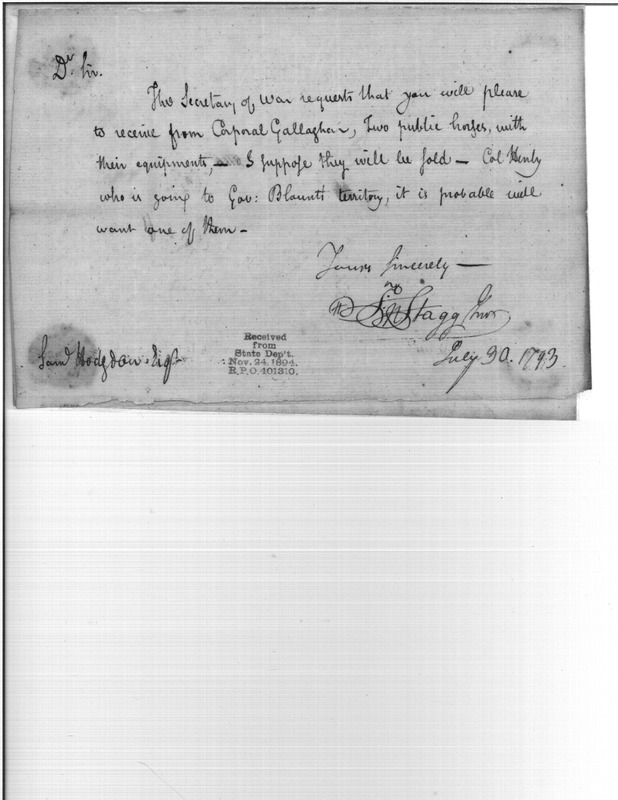 Dr Sir.
The Secretary of War requests that you will please
to receive from Corporal Gallaghan, Two public horses, with
their equipments, — I suppose they will be sold — Col Henly
who is going to Gov: Blounts territory, it is probable will
want one of them —
Yours sincerely —
Jno Stagg Junr
Saml Hodgdon Esqr
July 30. 1793.
Received
from
State Dep't.
Nov. 24, 1894.
R.P.O. 401310.